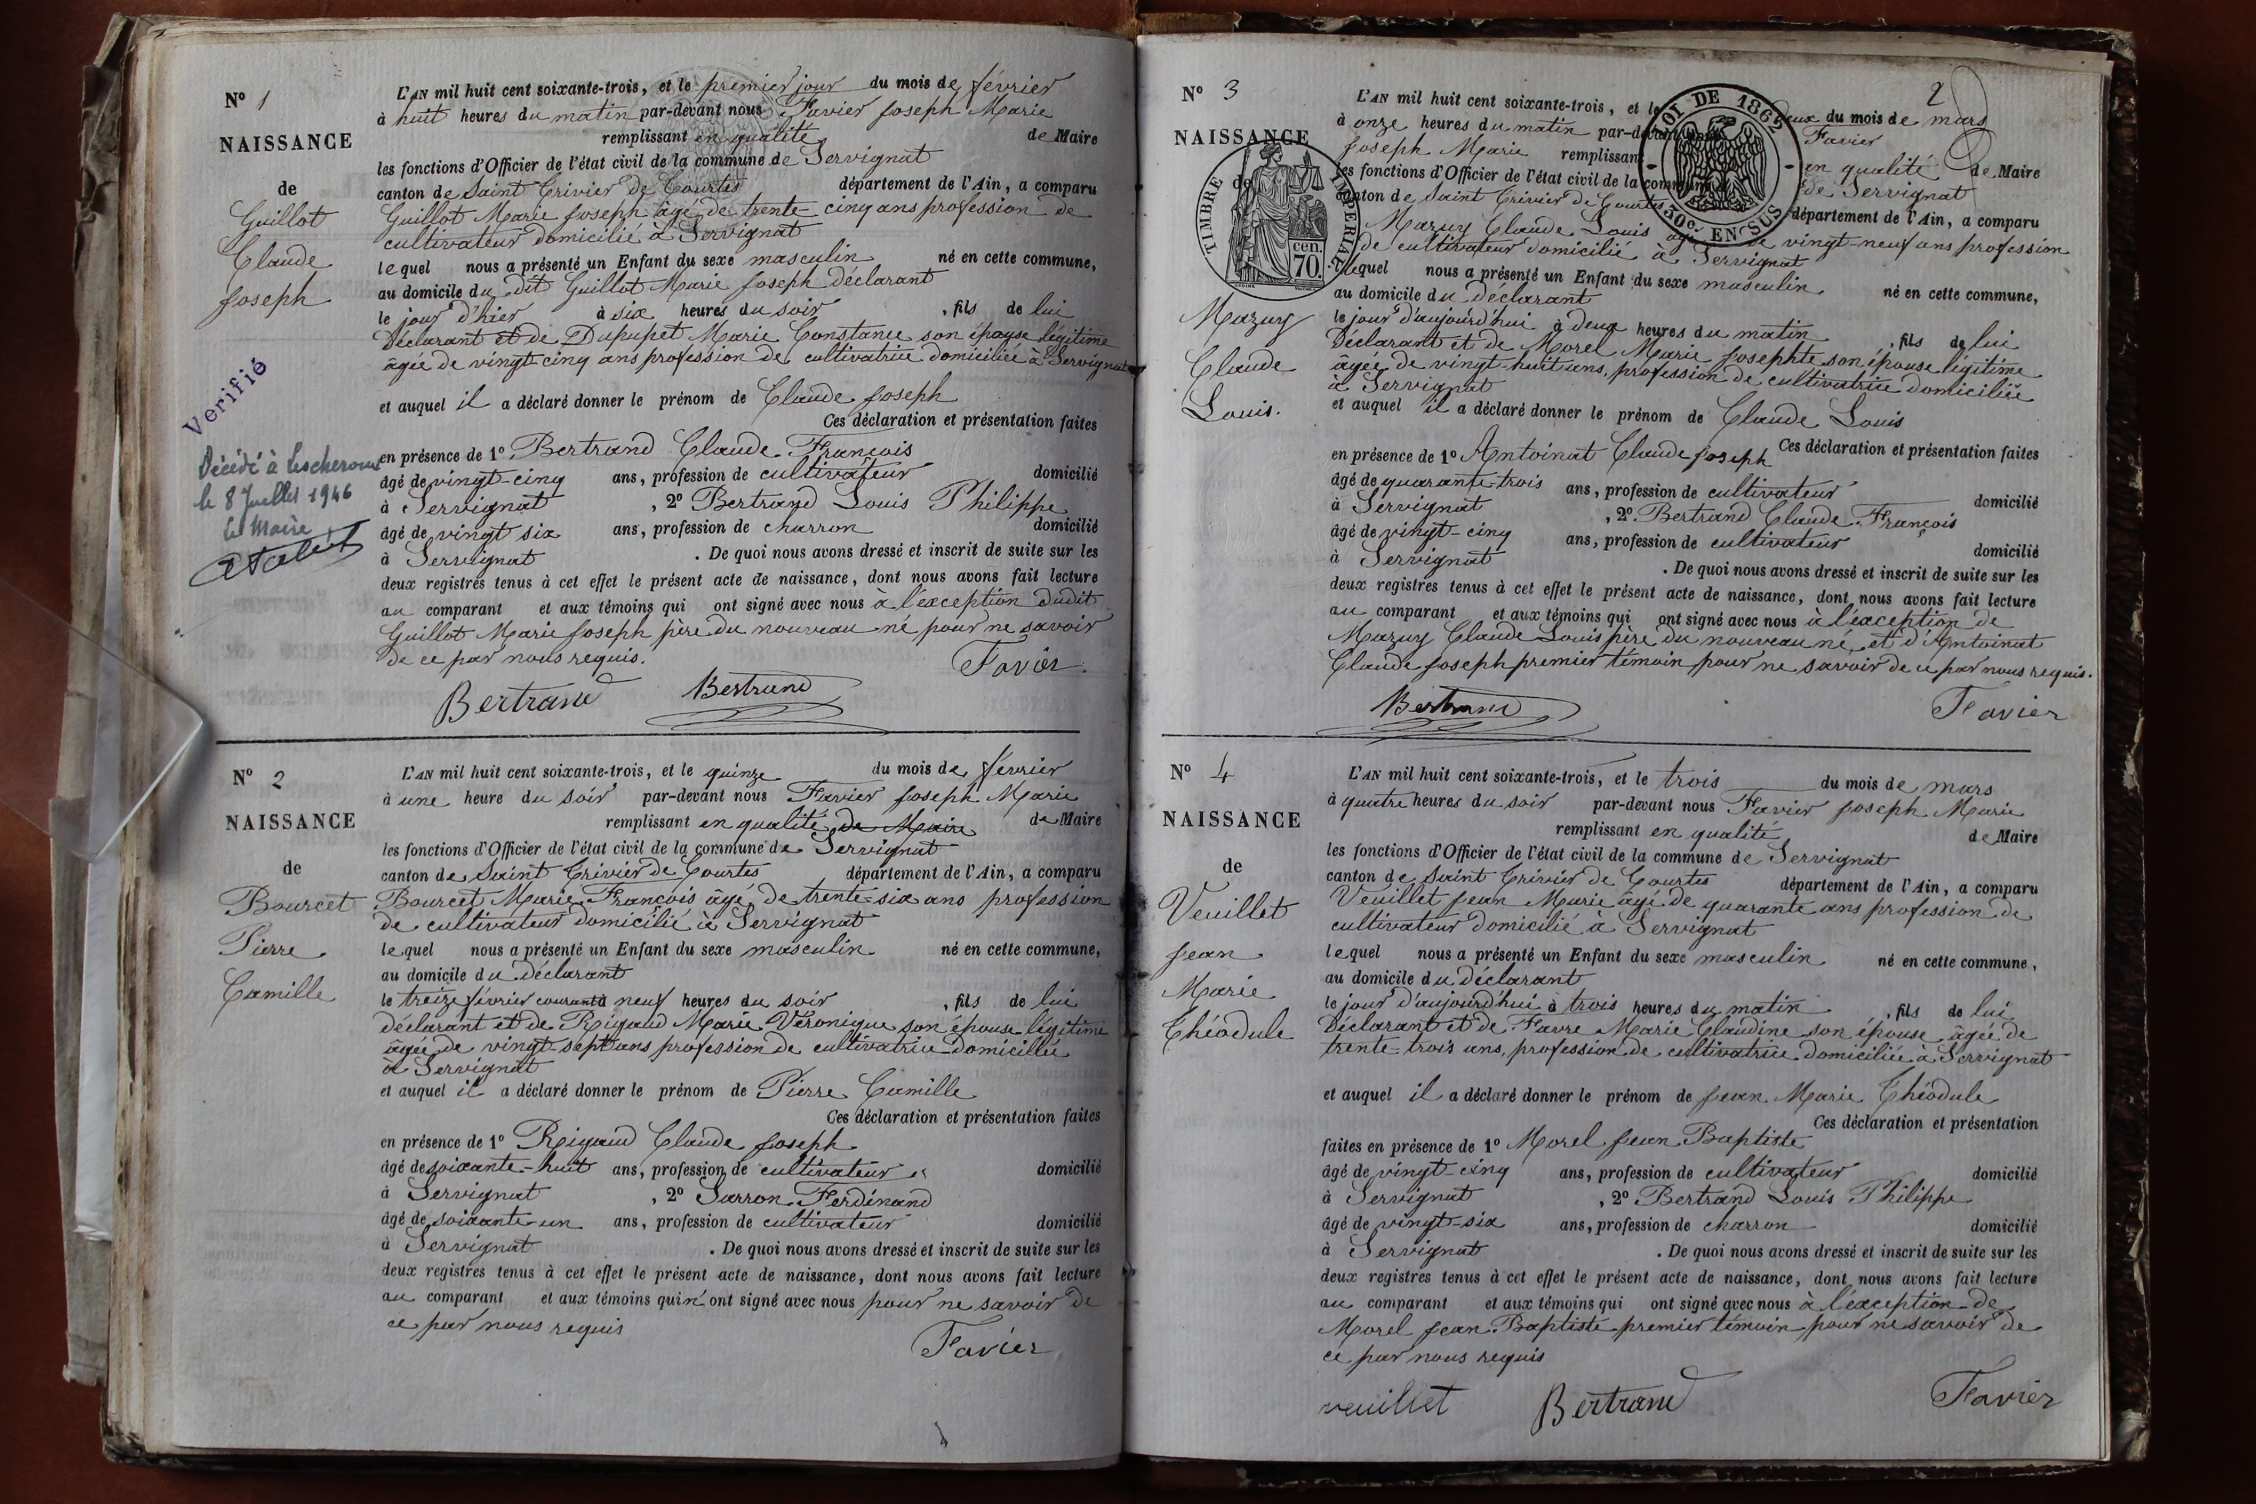 N° 1
NAISSANCE
de
Guillot
Claude
Joseph
Verifié
Décédé à Lescheroux
le 8 Juillet 1946
Le Maire
L'AN mil huit cent soixante-trois, et le premier jour du mois de février
à huit heures du matin par-devant nous Favier Joseph Marie
remplissant en qualité de Maire
les fonctions d'Officier de l'état civil de la commune de Servignat
canton de Saint Trivier de Courtes département de l'Ain, a comparu
Guillot Marie Joseph âgé de trente-cinq ans profession de
cultivateur domicilié à Servignat
lequel nous a présenté un Enfant du sexe masculin né en cette commune,
au domicile du dit Guillot Marie Joseph déclarant
le jour d'hier à six heures du soir, fils de lui
Déclarant et de Dupupet Marie Constance son épouse légitime
âgée de vingt-cinq ans profession de cultivatrice domiciliée à Servignat
et auquel il a déclaré donner le prénom de Claude Joseph
Ces déclaration et présentation faites
en présence de 1° Bertrand Claude François
âgé de vingt-cinq ans, profession de cultivateur domicilié
à Servignat, 2° Bertrand Louis Philippe
âgé de vingt six ans, profession de charron domicilié
à Servignat. De quoi nous avons dressé et inscrit de suite sur les
deux registres tenus à cet effet le présent acte de naissance, dont nous avons fait lecture
au comparant et aux témoins qui ont signé avec nous à l'exception dudit
Guillot Marie Joseph père du nouveau né pour ne savoir
de ce par nous requis.
Favier
Bertrand Bertrand
N° 2
NAISSANCE
de
Bourcet
Pierre
Camille
L'AN mil huit cent soixante-trois, et le quinze du mois de février
à une heure du soir par-devant nous Favier Joseph Marie
remplissant en qualité de Maire de Maire
les fonctions d'Officier de l'état civil de la commune de Servignat
canton de Saint Trivier de Courtes département de l'Ain, a comparu
Bourcet Marie François âgé de trente-six ans profession
de cultivateur domicilié à Servignat
lequel nous a présenté un Enfant du sexe masculin né en cette commune,
au domicile du déclarant
le treize février courant à neuf heures du soir, fils de lui
déclarant et de Rigaud Marie Véronique son épouse légitime
âgée de vingt-sept ans profession de cultivatrice domiciliée
à Servignat
et auquel il a déclaré donner le prénom de Pierre Camille
Ces déclaration et présentation faites
en présence de 1° Rigaud Claude Joseph
âgé de soixante-huit ans, profession de cultivateur domicilié
à Servignat, 2° Sarron Ferdinand
âgé de soixante-un ans, profession de cultivateur domicilié
à Servignat. De quoi nous avons dressé et inscrit de suite sur les
deux registres tenus à cet effet le présent acte de naissance, dont nous avons fait lecture
au comparant et aux témoins qui n'ont signé avec nous pour ne savoir de
ce par nous requis
Favier
2
N° 3
NAISSANCE
de
TIMBRE IMPERIAL
cen.
70.
LOI DE 1862
30c. EN SUS
Mazuy
Claude
Louis.
L'AN mil huit cent soixante-trois, et le deux du mois de mars
à onze heures du matin par-devant nous Favier
Joseph Marie remplissant en qualité de Maire
les fonctions d'Officier de l'état civil de la commune de Servignat
canton de Saint Trivier de Courtes département de l'Ain, a comparu
Mazuy Claude Louis âgé de vingt-neuf ans profession
de cultivateur domicilié à Servignat
lequel nous a présenté un Enfant du sexe masculin né en cette commune,
au domicile du déclarant
le jour d'aujourd'hui à deux heures du matin, fils de lui
Déclarant et de Morel Marie Josephte son épouse légitime
âgée de vingt-huit ans, profession de cultivatrice domiciliée
à Servignat
et auquel il a déclaré donner le prénom de Claude Louis
Ces déclaration et présentation faites
en présence de 1° Antoinat Claude Joseph
âgé de quarante-trois ans, profession de cultivateur domicilié
à Servignat, 2° Bertrand Claude François
âgé de vingt-cinq ans, profession de cultivateur domicilié
à Servignat. De quoi nous avons dressé et inscrit de suite sur les
deux registres tenus à cet effet le présent acte de naissance, dont nous avons fait lecture
au comparant et aux témoins qui ont signé avec nous à l'exception de
Mazuy Claude Louis père du nouveau né et d'Antoinat
Claude Joseph premier témoin pour ne savoir de ce par nous requis.
Bertrand Favier
N° 4
NAISSANCE
de
Veuillet
Jean
Marie
Théodule
L'AN mil huit cent soixante-trois, et le trois du mois de mars
à quatre heures du soir par-devant nous Favier Joseph Marie
remplissant en qualité de Maire
les fonctions d'Officier de l'état civil de la commune de Servignat
canton de Saint Trivier de Courtes département de l'Ain, a comparu
Veuillet Jean Marie âgé de quarante ans profession de
cultivateur domicilié à Servignat
lequel nous a présenté un Enfant du sexe masculin né en cette commune,
au domicile du déclarant
le jour d'aujourd'hui à trois heures du matin, fils de lui
Déclarant et de Favre Marie Claudine son épouse âgée de
trente-trois ans, profession de cultivatrice domiciliée à Servignat
et auquel il a déclaré donner le prénom de Jean Marie Théodule
Ces déclaration et présentation
faites en présence de 1° Morel Jean Baptiste
âgé de vingt-cinq ans, profession de cultivateur domicilié
à Servignat, 2° Bertrand Louis Philippe
âgé de vingt-six ans, profession de charron domicilié
à Servignat. De quoi nous avons dressé et inscrit de suite sur les
deux registres tenus à cet effet le présent acte de naissance, dont nous avons fait lecture
au comparant et aux témoins qui ont signé avec nous à l'exception de
Morel Jean Baptiste premier témoin pour ne savoir de
ce par nous requis
veuillet Bertrand Favier